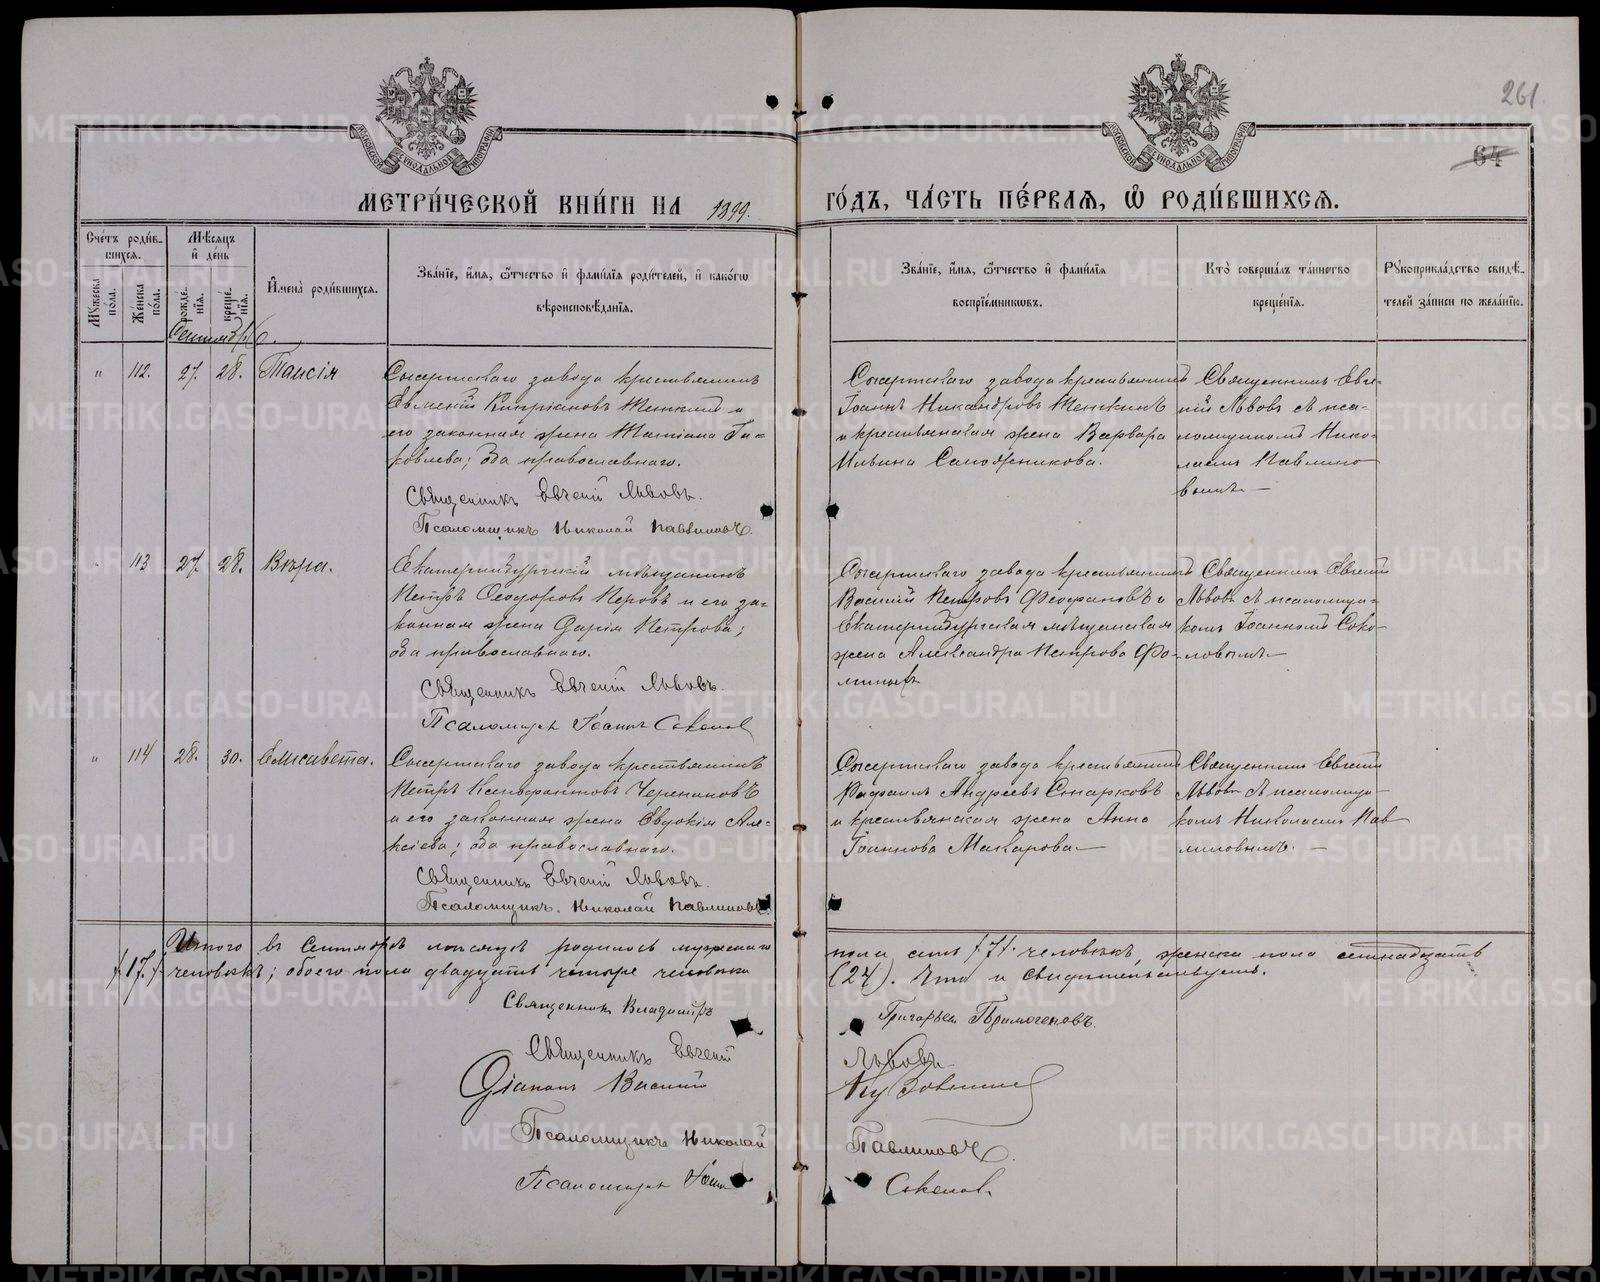 261
64
МОСКОВСКОЙ СѴНОДАЛЬНОЙ ТИПОГРАФІИ
МОСКОВСКОЙ СѴНОДАЛЬНОЙ ТИПОГРАФІИ
МЕТРИ́ЧЕСКОЙ КНИ́ГИ НА 1899. ГО́ДЪ, ЧА́СТЬ ПЕ́РВАЯ, Ѡ҆ РОДИ́ВШИХСЯ.
Сче́тъ роди́в-
шихся.
Мꙋжеска по́ла.
Женска по́ла.
Мѣ́сяцъ и҆ де́нь
рожде́нїя.
креще́нїя.
И҆мена̀ роди́вшихся.
Зва́нїе, и҆́мя, ѻ҆́тчество и҆ фами́лїя роди́телей, и҆ како́гѡ
вѣроисповѣ́данїя.
Зва́нїе, и҆́мя, ѻ҆́тчество и҆ фами́лїя
воспрїе́мниковъ.
Кто̀ соверша́лъ та́инство
креще́нїя.
Рꙋкоприкла́дство свидѣ́-
телей за́писи по жела́нїю.
Сентябрь.
" 112. 27. 28. Таисія
Сысертскаго завода крестьянинъ
Евменій Кипріановъ Шенкинъ и
его законная жена Татіана Яковлева; оба православнаго.
Священникъ Евгеній Львовъ.
Псаломщикъ Николай Павлиновъ.
Сысертскаго завода крестьянинъ
Іоаннъ Никандровъ
и крестьянская жена Варвара
Ильина Сапожникова.
Священникъ Евге-
ній Львовъ съ пса-
ломщикомъ Нико-
лаемъ Павлино-
вымъ.—
113 27. 28. Вѣра.
Екатеринбургскій мѣщанинъ
Петръ Ѳеодоровъ Перовъ и его за-
конная жена Дарія Петрова;
оба православнаго.
Священникъ Евгеній Львовъ.
Псаломщикъ Іоаннъ Соколовъ
Сысертскаго завода крестьянинъ
Василій Петровъ Феофановъ и
Екатеринбургская мѣщанская
жена Александра Петрова Фо-
миныхъ
Священникъ Евгеній
Львовъ съ псаломщи-
комъ Іоанномъ Соко-
ловымъ.—
" 114 28. 30. Елисавета.
Сысертскаго завода крестьянинъ
Петръ Ксенофонтовъ Черепановъ
и его законная жена Евдокія Але-
ксіева; оба православнаго.
Священникъ Евгеній Львовъ.
Псаломщикъ Николай Павлиновъ
Сысертскаго завода крестьянинъ
Рафаилъ Андреевъ Старковъ
и крестьянская жена Анна
Іоаннова Макарова—
Священникъ Евгеній
Львовъ съ псаломщи-
комъ Николаемъ Пав
линовымъ. —
Итого въ Сентябрѣ мѣсяцѣ родилось мужескаго пола семь /7/. человѣкъ, женска пола семнадцать
/17./ человѣкъ; обоего пола двадцать четыре человѣка (24). Что и свидѣтельствуемъ.
Священникъ Владиміръ Григорьевъ Первогеновъ
Священникъ Евгеній Львовъ
Діаконъ Василій
Псаломщикъ Николай Павлиновъ.
Псаломщикъ Іоаннъ Соколовъ
METRIKI.GASO-URAL.RU